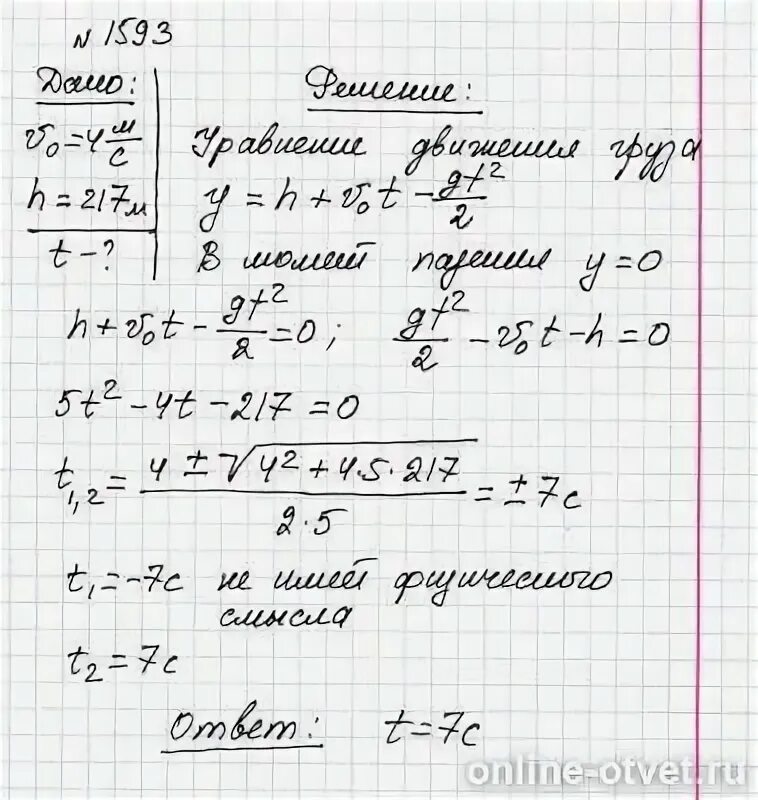 № 1593
Дано:
v₀=4 м/с
h=217м
t-?
Решение:
Уравнение движения груза
y=h+v₀t-gt²/2
В момент падения y=0
h+v₀t-gt²/2=0; gt²/2-v₀t-h=0
5t²-4t-217=0
t₁,₂=(4±√(4²+4·5·217))/(2·5)=±7c
t₁=-7c не имеет физического
смысла
t₂=7c
Ответ: t=7c
online-otvet.ru